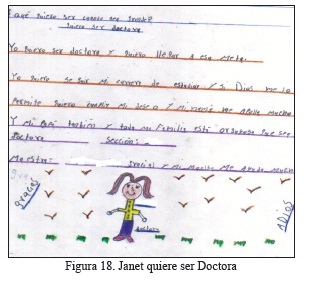 ¿qué quiero ser cuando sea grande?
Quiero ser doctora
Yo quiero ser doctora y quiero llegar a esa meta.
Yo quiero seguir mi carrera de estudiar y si Dios me lo
permite quiero cumplir mi deseo y mi mamá me apolla mucho
y mi papi también y toda mi familia está orgullosa que sea
doctora Sección:
Maestra: Gracias y mi mamita me ayuda mucho
gracias
doctora
ADIOS
Figura 18. Janet quiere ser Doctora